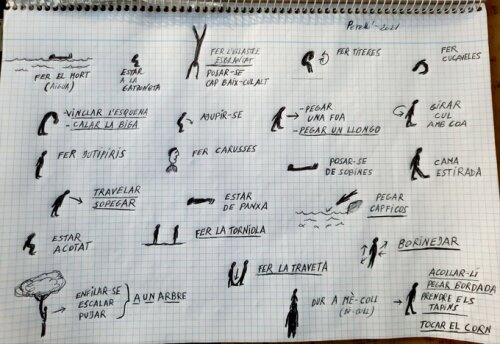 Perelló-2021
FER EL MORT
(AIGUA)
ESTAR
A LA
GATZONETA
FER L'ULLASTRE
ESBRANCAT
POSAR-SE
CAP BAIX-CUL ALT
FER TITERES
FER
CUCAVELES
-VINCLAR L'ESQUENA
-CALAR LA BIGA
AJUPIR-SE
-PEGAR
UNA FUA
-PEGAR UN LLONGO
GIRAR
CUL
AMB COA
FER BOTIPIRIS
FER CARUSSES
POSAR-SE
DE SOBINES
CAMA
ESTIRADA
TRAVELAR
SOPEGAR
ESTAR
DE PANXA
PEGAR
CAPFICOS
ESTAR
ACOTAT
FER LA TORNIOLA
BORINEJAR
ENFILAR-SE
ESCALAR
PUJAR
A UN ARBRE
FER LA TRAVETA
DUR A MÈ-COLL
ACOLLAR-LI
PEGAR BORDADA
PRENDRE ELS
TAPINS
TOCAR EL CORN